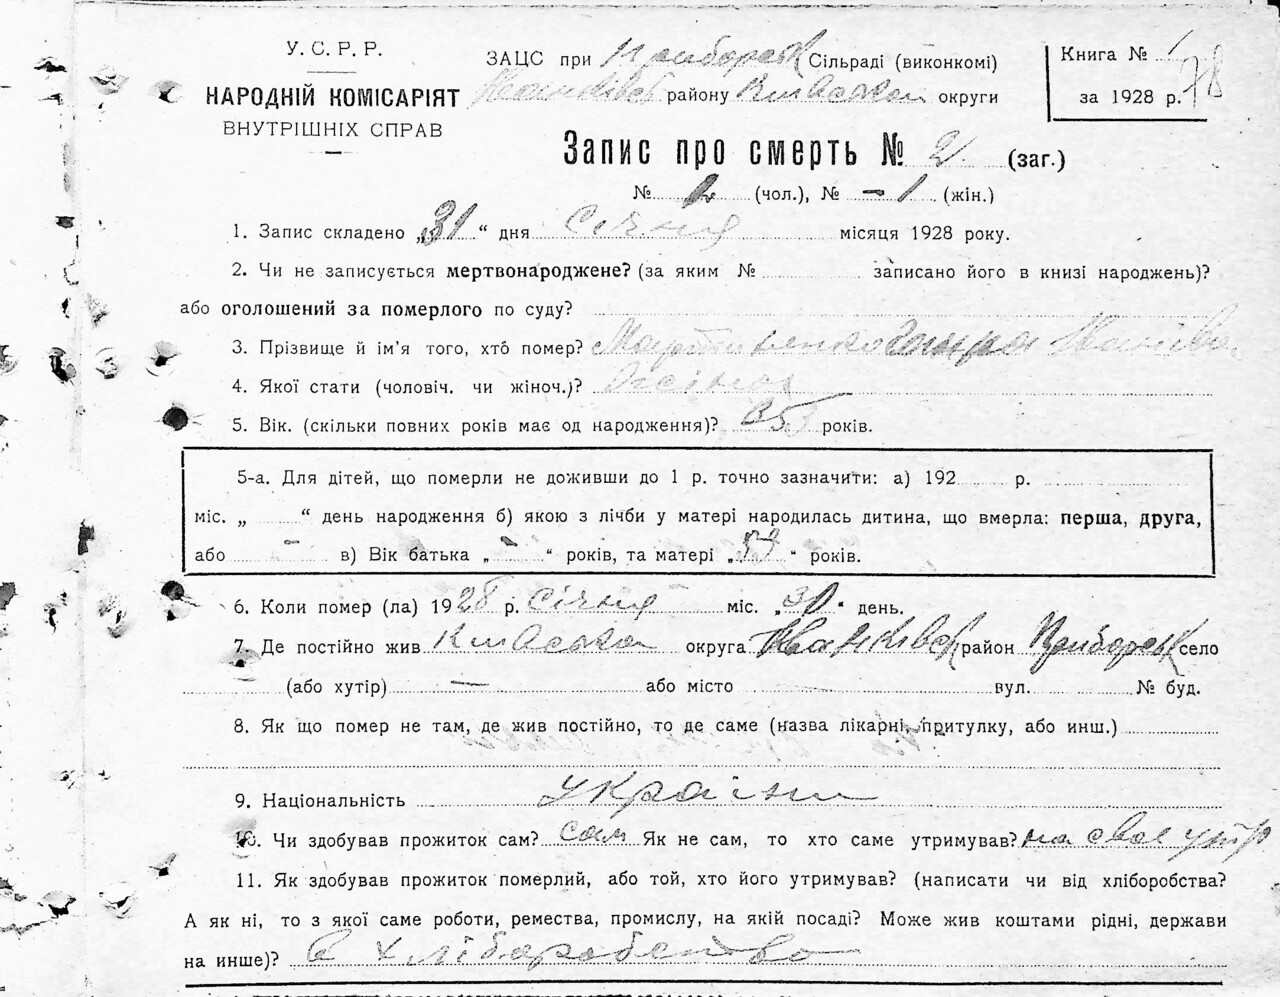 У.С.Р.Р.
НАРОДНІЙ КОМІСАРІЯТ
ВНУТРІШНІХ СПРАВ
ЗАЦС при Сільраді (виконкомі)
району округи
Книга № 1
за 1928 р. 78
Запис про смерть № 2 (заг.)
№ (чол.), № – 1 (жін.)
1. Запис складено „31“ дня Січня місяця 1928 року.
2. Чи не записується мертвонароджене? (за яким № записано його в книзі народжень)?
або оголошений за померлого по суду?
3. Прізвище й ім’я того, хто помер?
4. Якої стати (чоловіч. чи жіноч.)?
5. Вік. (скільки повних років має од народження)? років.
5-а. Для дітей, що померли не доживши до 1 р. точно зазначити: а) 192 р.
міс. „ “ день народження б) якою з лічби у матері народилась дитина, що вмерла: перша, друга,
або – в) Вік батька „ – “ років, та матері „ “ років.
6. Коли помер (ла) 1928 р. січня міс. „30“ день.
7. Де постійно жив округа район село
(або хутір) — або місто — вул. № буд.
8. Як що помер не там, де жив постійно, то де саме (назва лікарні, притулку, або инш.)
9. Національність
10. Чи здобував прожиток сам? сам Як не сам, то хто саме утримував? на свое утр
11. Як здобував прожиток померлий, або той, хто його утримував? (написати чи від хліборобства?
А як ні, то з якої саме роботи, ремества, промислу, на якій посаді? Може жив коштами рідні, держави
на инше)?